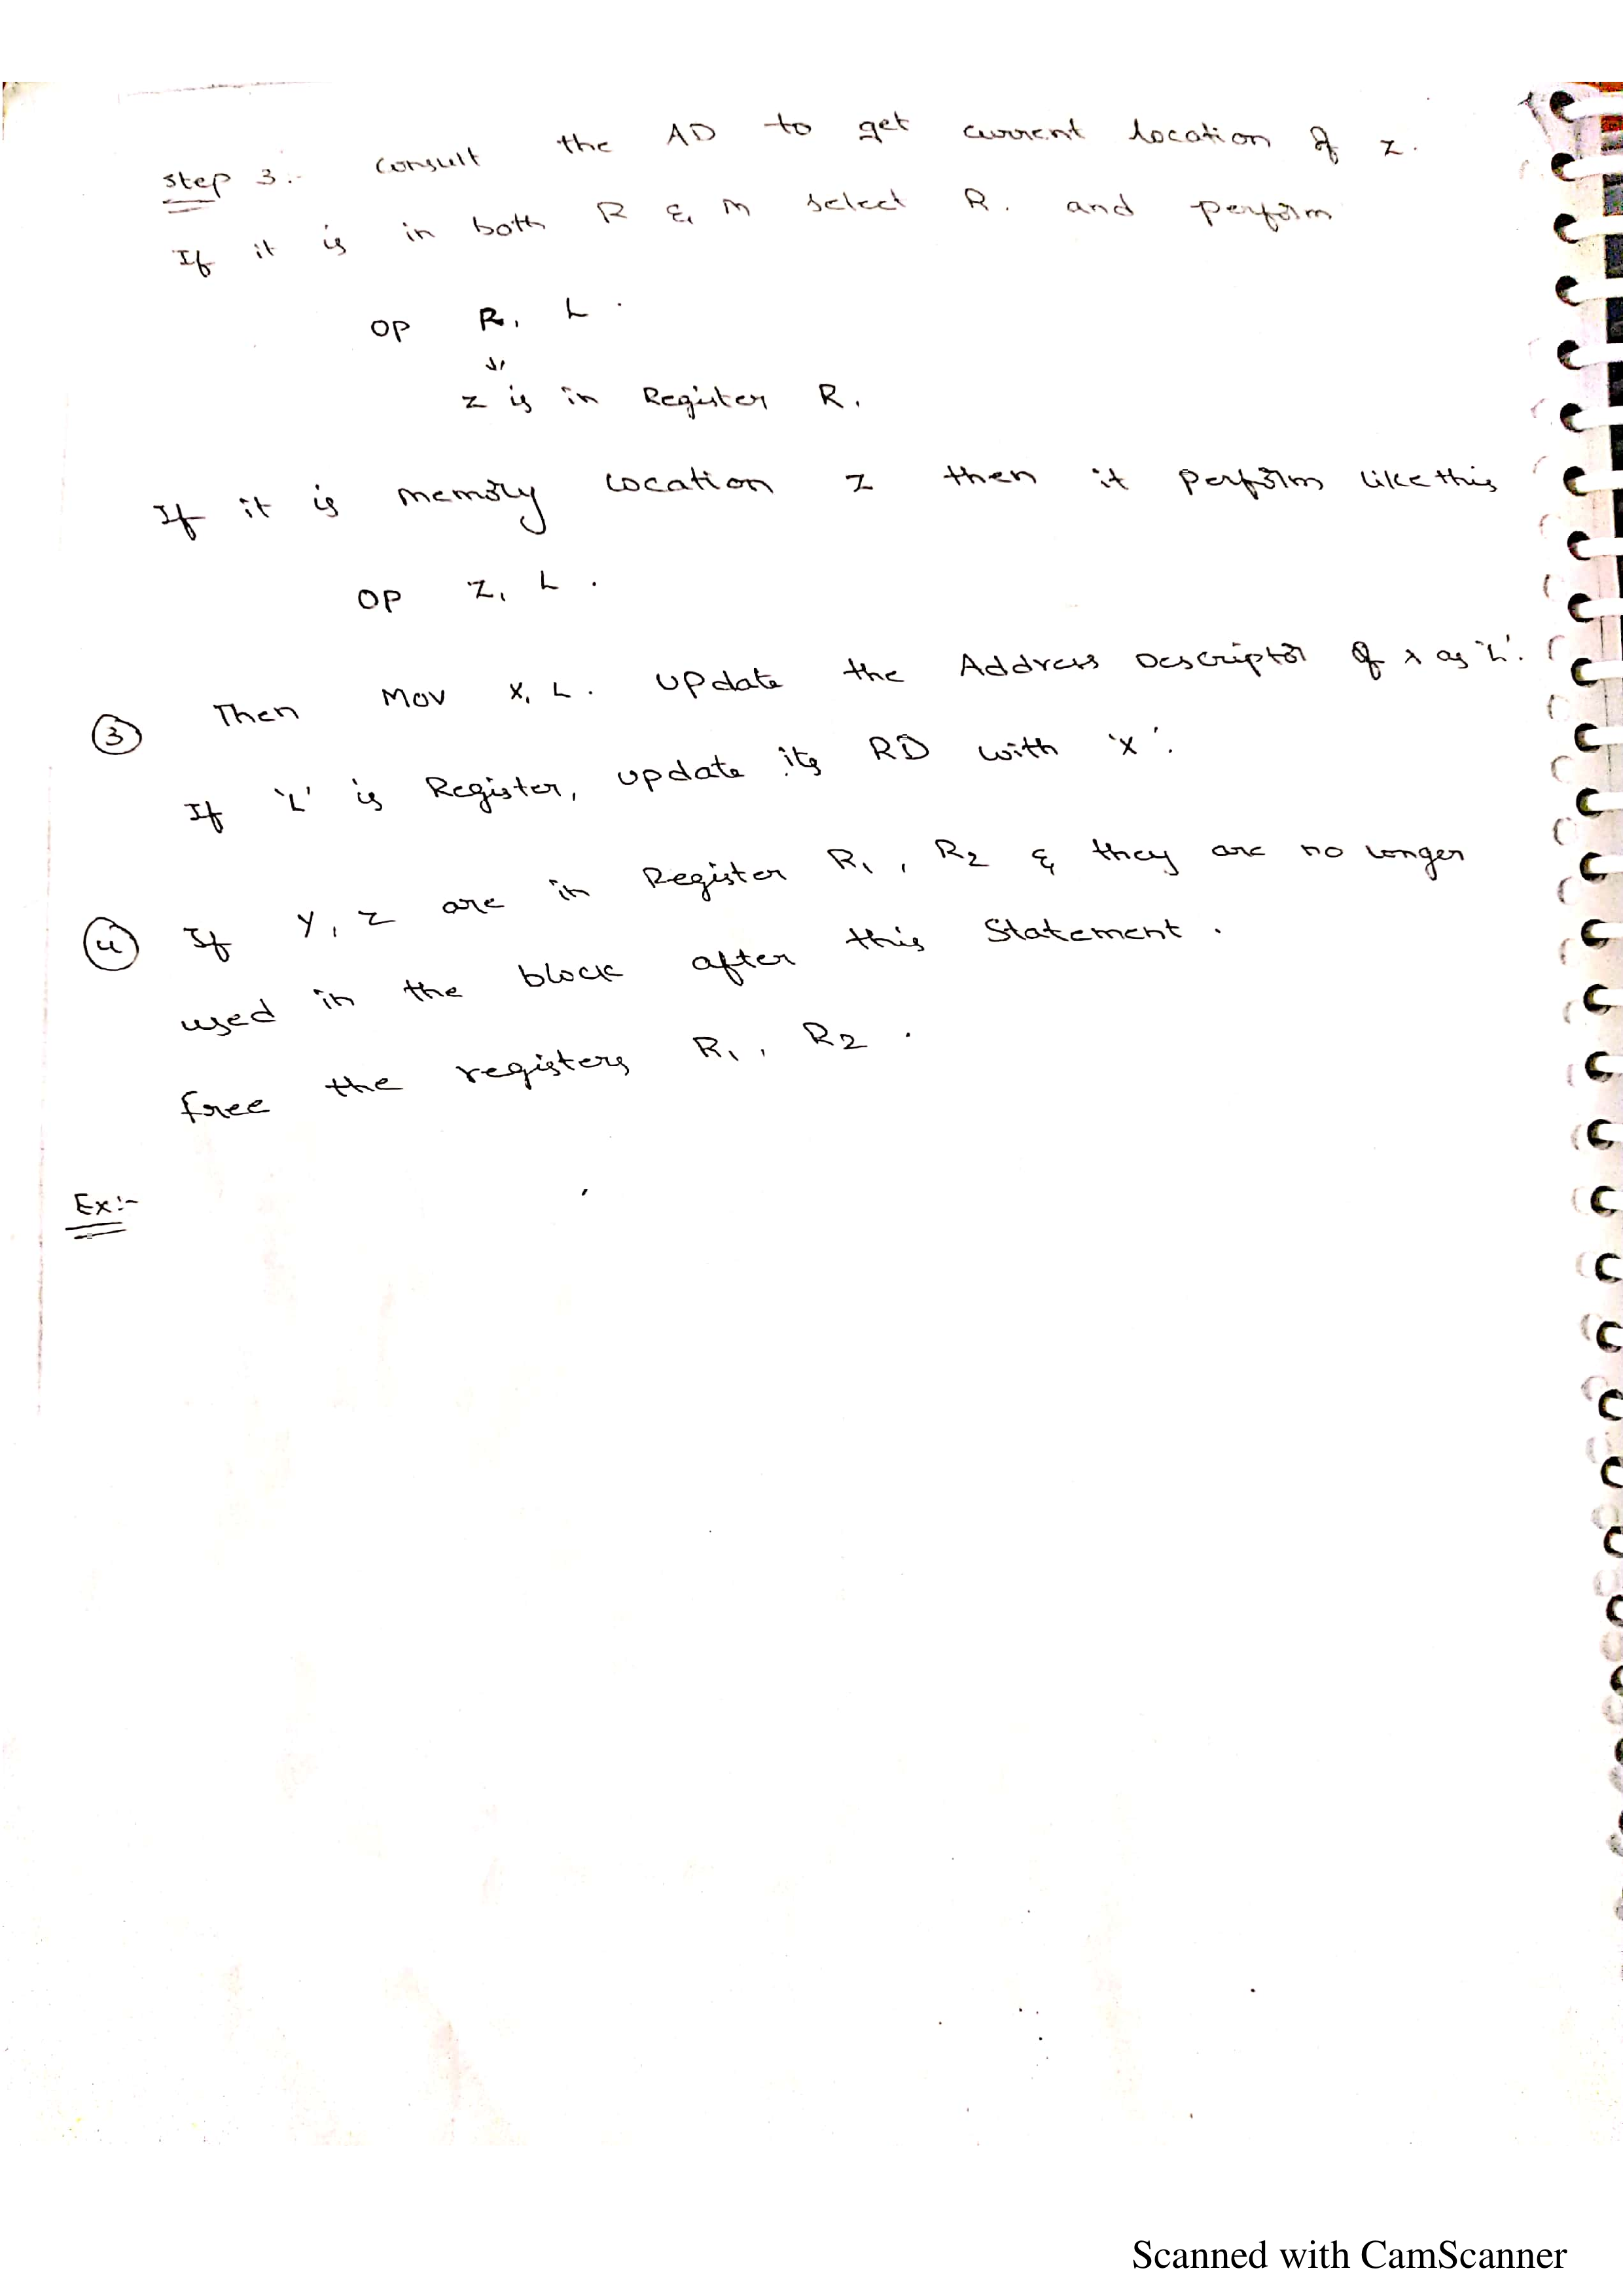 Step 3:- consult the AD to get current location of z.
If it is in both R & M select R. and perform
OP R, L.
↓
z is in Register R.
If it is memory location z then it perform like this
OP Z, L.
③ Then Mov X, L. update the Address Descriptor of x as 'L'.
If 'L' is Register, update its RD with 'X'.
④ If Y, Z are in Register R1, R2 & they are no longer
used in the block after this Statement.
free the registers R1, R2.
Ex:-
Scanned with CamScanner